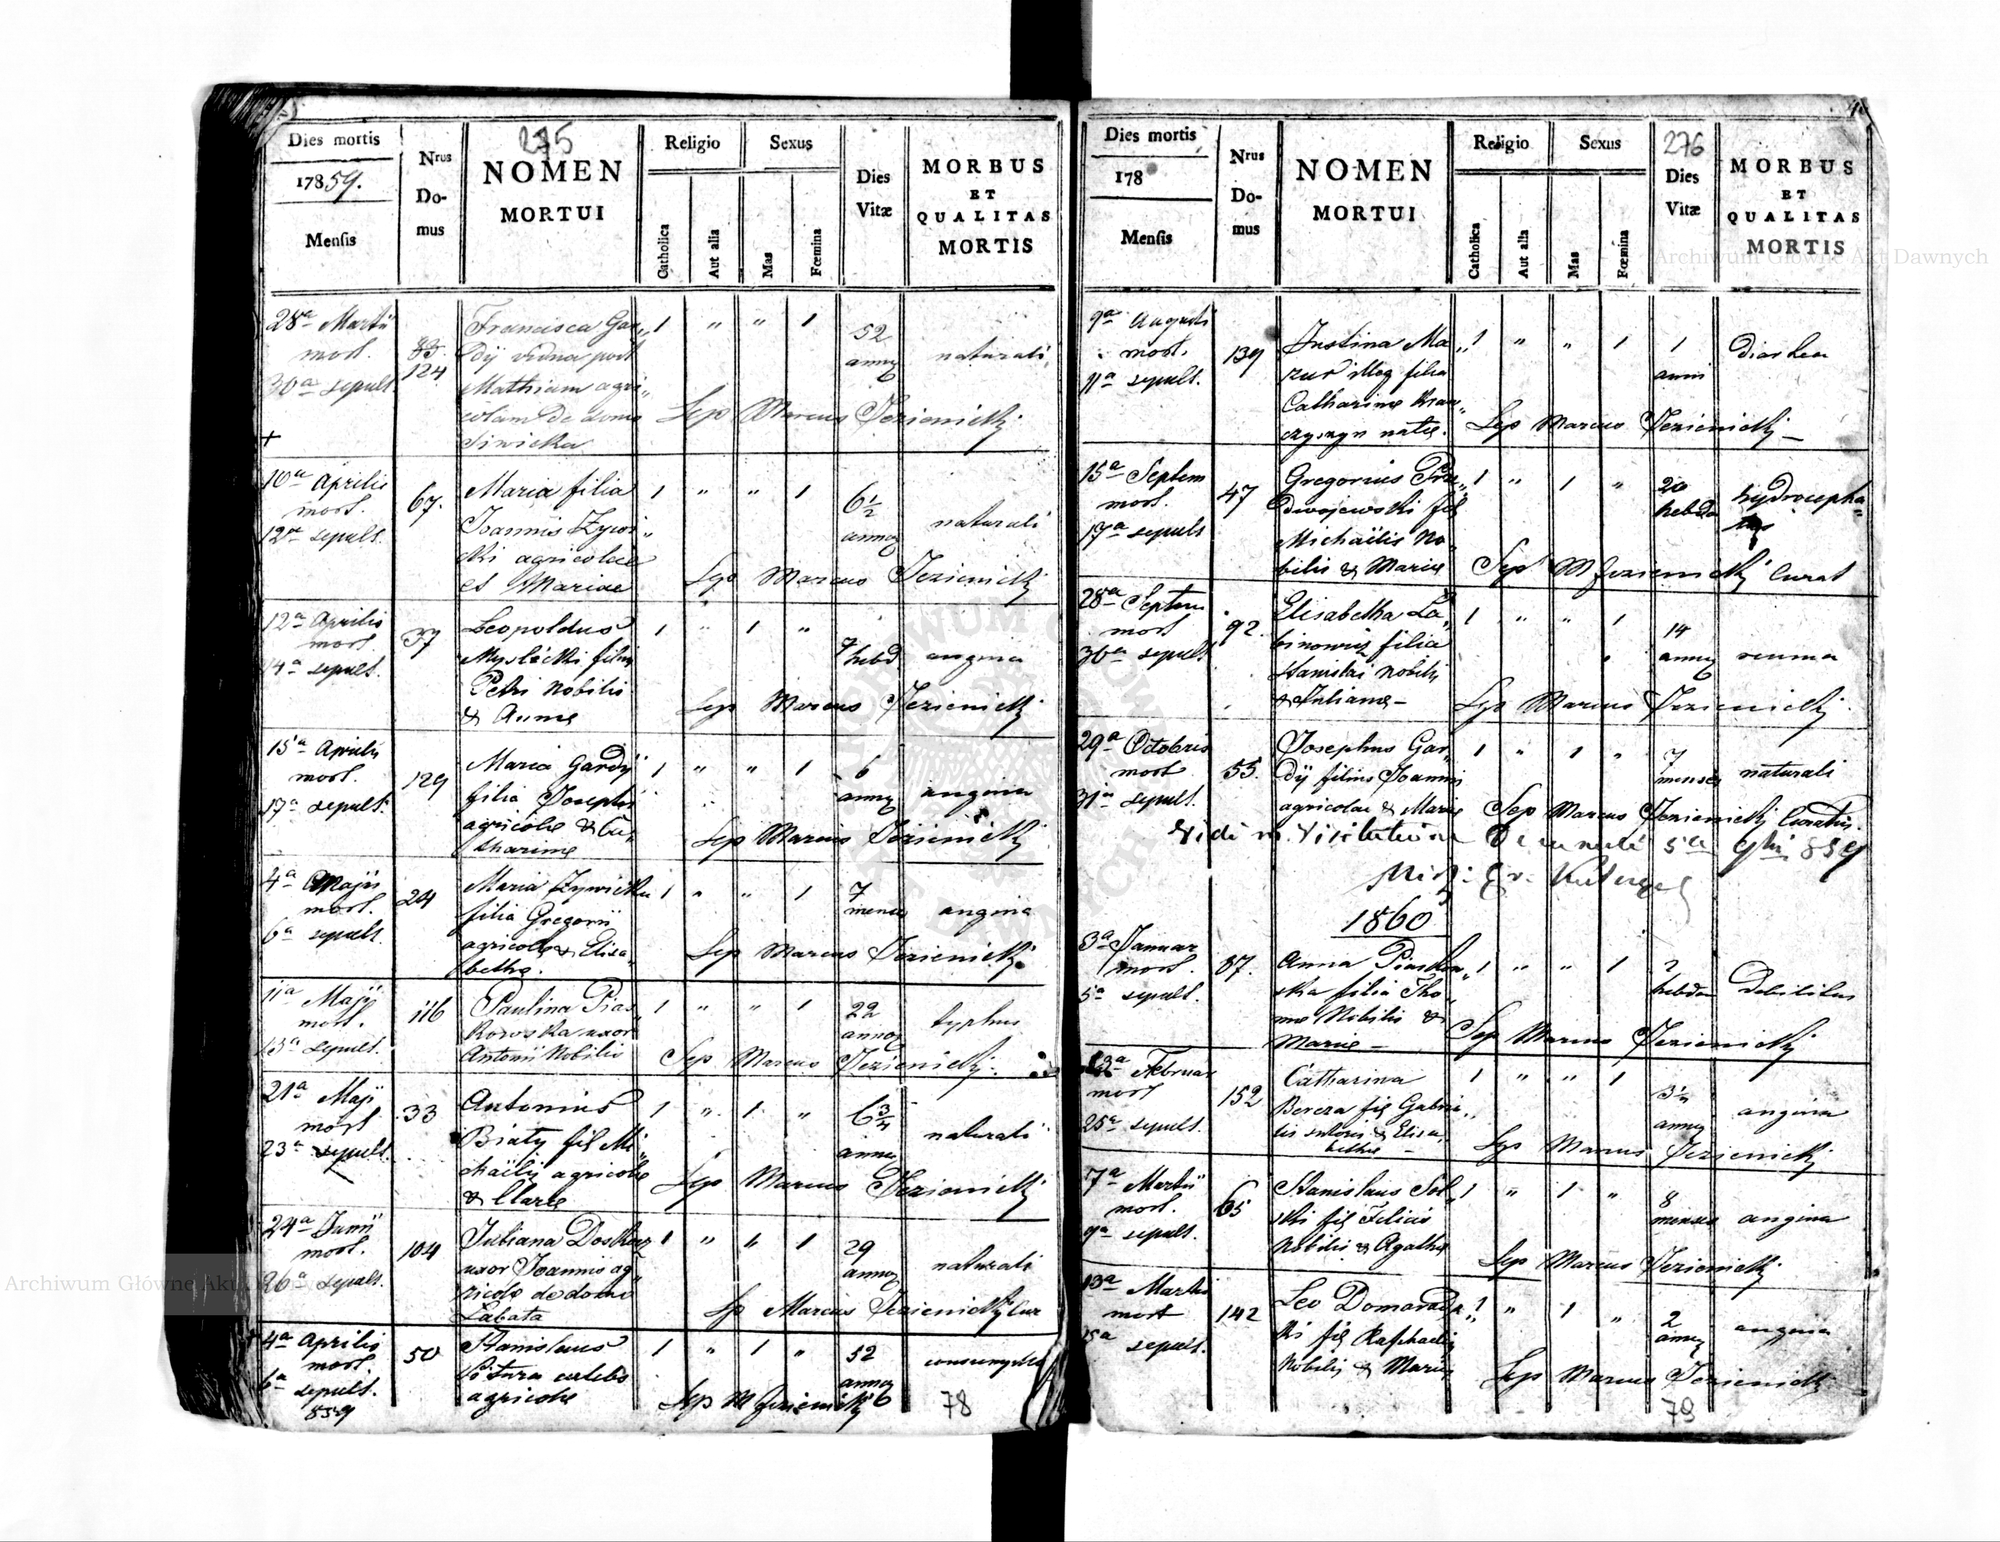 275
Dies mortis
1859.
Mensis
Nrus
Do-
mus
NOMEN
MORTUI
Religio
Catholica
Aut alia
Sexus
Mas
Fœmina
Dies
Vitæ
MORBUS
ET
QUALITAS
MORTIS
28a Martii
mort.
30a sepult.
124
Francisca Gar„
dÿ vidua post
Mathiam agri„
colam de domo
Siwicka
1 „ „ 1
52
annor
naturali
Sep Marcus Jezienicki
10a Aprilis
mort.
12a sepult.
67.
Maria filia
Joannis Zywi„
cki agricolae
et Mariae
1 „ „ 1
6½
annor
naturali
Sep Marcus Jezienicki
12a Aprilis
mort.
14a sepult.
37
Leopoldus
Myslécki filius
Petri Nobilis
& Annae
1 „ 1 „
7
hebd
angina
Sep Marcus Jezienicki
15a Aprilis
mort.
17a sepult.
129
Maria Gardÿ
filia Josephi
agricolae & Ca„
tharinae
1 „ „ 1
6
annor
angina
Sep Marcus Jezienicki
4a Majii
mort.
6a sepult.
24
Maria Zywicka
filia Gregorii
agricolae & Elisa„
betha.
1 „ „ 1
7
menses
angina
Sep Marcus Jezienicki
11a Majii
mort.
13a sepult.
116
Paulina Pias„
kowska uxor
Antonii Nobilis
1 „ „ 1
22
annor
typhus
Sep Marcus Jezienicki
21a Maji
mort
23a sepult.
33
Antonius
Biały fil Mi„
chaëlis agricolae
& Clarae
1 „ 1 „
6¾
annor
naturali
Sep Marcus Jezienicki
24a Junii
mort.
26a sepult.
104
Juliana Doskocz
uxor Joannis ag„
ricolae de domo
Labata
1 „ „ 1
29
annor
naturali
Sep Marcus Jezienicki Cur
4a Aprilis
mort.
6a sepult.
859
50
Stanislaus
agricolae
1 „ 1 „
52
annor
Sep M Jezienicki
78
276
Dies mortis
178
Mensis
Nrus
Do-
mus
NOMEN
MORTUI
Religio
Catholica
Aut alia
Sexus
Mas
Fœmina
Dies
Vitæ
MORBUS
ET
QUALITAS
MORTIS
9a Augusti
mort.
11a sepult.
139
Justina Ma„
zur illeg filia
Catharinae
natae.
1 „ „ 1
1
anni
diarhea
Sep Marcus Jezienicki
15a Septem
mort.
17a sepult
47
Gregorius Prze„
diwojewski fil
Michaëlis No„
bilis & Mariae
1 „ 1 „
20
hebdo
hydrocepha„
lus
Sep M Jezienicki Curat
28a Septem
mort
30a sepult
92
Elisabetha La„
binowicz filia
Stanislai Nobilis
& Julianae –
1 „ „ 1
14
annor
reuma
Sep Marcus Jezienicki
29a Octobris
mort
31a sepult.
55.
Josephus Gar„
dÿ filius Joannis
agricolae & Mariae
1 „ 1 „
7
menses
naturali
Sep Marcus Jezienicki Curatus.
Vidi in Visitatione Decanali 5a 9bris 859
1860
3a Januar
mort.
5a sepult.
87.
Anna Piaskow„
ska filia Tho„
mae Nobilis &
Mariae –
1 „ „ 1
2
hebdo
debilitas
Sep Marcus Jezienicki
23a Februar
mort
25a sepult.
152
Catharina
Bereza fil Gabrie„
lis sutoris & Elisa„
bethae –
1 „ „ 1
3½
annor
angina
Sep Marcus Jezienicki
7a Martii
mort.
9a sepult.
65
Stanislaus Sol„
ski fil Felicis
Nobilis & Agathae
1 „ 1 „
8
menses
angina
Sep Marcus Jezienicki
13a Martii
mort
15a sepult.
142
Leo Domaradz„
ki fil Raphaelis
Nobilis & Mariae
1 „ 1 „
2
annor
angina
Sep Marcus Jezienicki
79
Archiwum Główne Akt Dawnych
Archiwum Główne Akt Dawnych